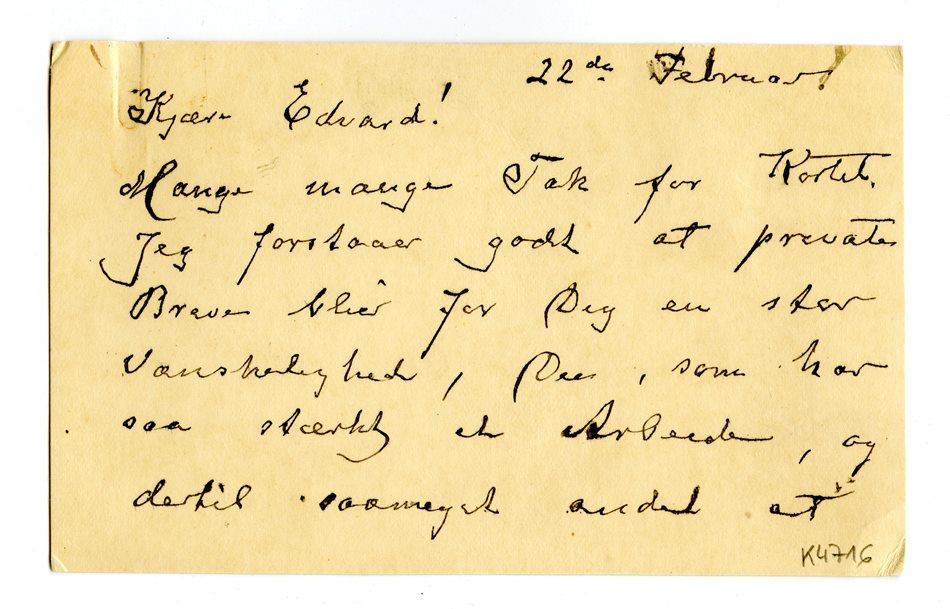 22de Februar!
Kjære Edvard!
Mange mange Tak for Kortet.
Jeg forstaaer godt at private
Breve blier for Dig en stor
Vanskelighed, Dee, som har
saa stærkt et Arbeide, og
dertil saameget andet at
K4716